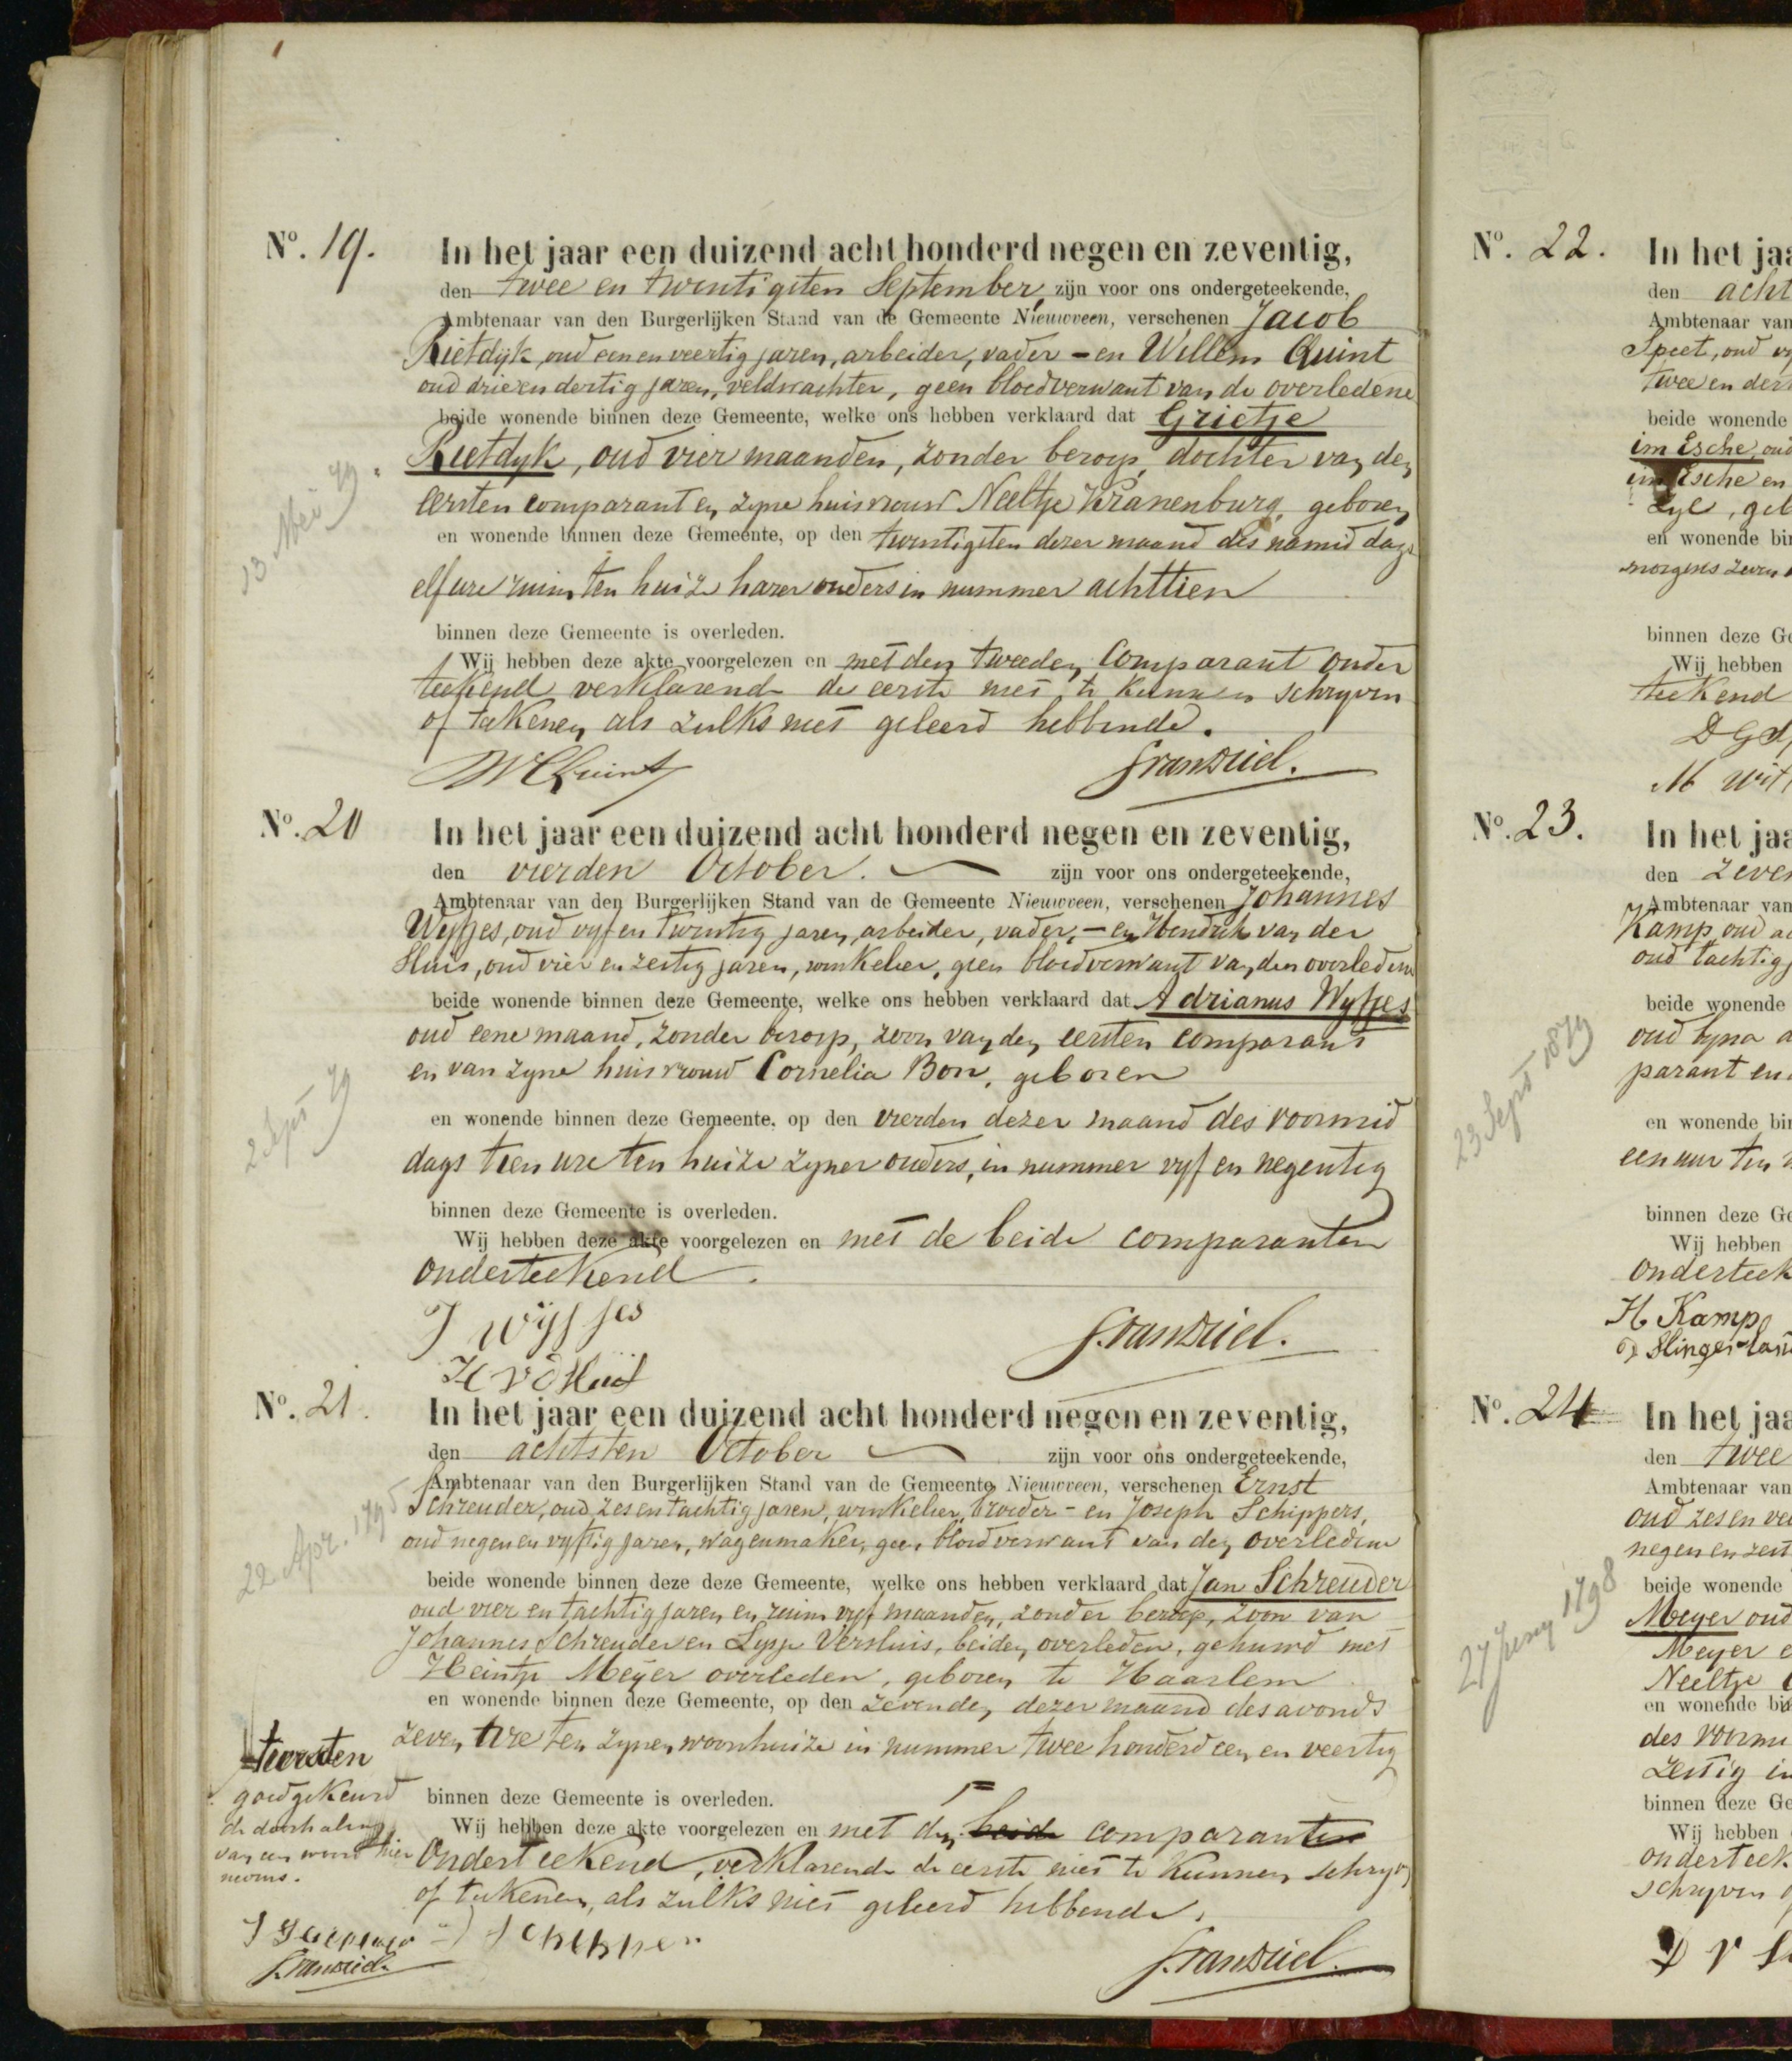 No. 19.
In het jaar een duizend acht honderd negen en zeventig,
den twee en twintigsten September, zijn voor ons ondergeteekende,
Ambtenaar van den Burgerlijken Stand van de Gemeente Nieuwveen, verschenen Jacob
Rietdijk, oud een en veertig jaren, arbeider, vader - en Willem Quint
oud drie en dertig jaren, veldwachter, geen bloedverwant van de overledene
beide wonende binnen deze Gemeente, welke ons hebben verklaard dat Grietje
Rietdyk, oud vier maanden, zonder beroep, dochter van den
eersten comparant en zyne huisvrouw Neeltje Kranenburg, geboren
13 Mei 79.
en wonende binnen deze Gemeente, op den twintigsten dezer maand des namid dags
elf ure ruim ten huize harer ouders in nummer achttien
binnen deze Gemeente is overleden.
Wij hebben deze akte voorgelezen en met den tweeden comparant onder
teekend verklarende de eerste niet te kunnen schryven
of teekenen als zulks niet geleerd hebbende.
W Quint
No. 20
In het jaar een duizend acht honderd negen en zeventig,
den vierden October. zijn voor ons ondergeteekende,
Ambtenaar van den Burgerlijken Stand van de Gemeente Nieuwveen, verschenen Johannes
Wyfjes, oud vyf en twintig jaren, arbeider, vader, - en Hendrik van der
Sluis, oud vier en zestig jaren, winkelier, geen bloedverwant van den overledene
beide wonende binnen deze Gemeente, welke ons hebben verklaard dat Adrianus Wyfjes
oud eene maand, zonder beroep, zoon van den eersten comparant
en van zyne huisvrouw Cornelia Bon, geboren
2 Sept 79
en wonende binnen deze Gemeente, op den vierden dezer maand des voormid
dags tien ure ten huize zyner ouders, in nummer vyf en negentig
binnen deze Gemeente is overleden.
Wij hebben deze akte voorgelezen en met de beide comparanten
onderteekend.
J Wijfjes
H v d Sluis
No. 21.
In het jaar een duizend acht honderd negen en zeventig,
den achtsten October zijn voor ons ondergeteekende,
Ambtenaar van den Burgerlijken Stand van de Gemeente Nieuwveen, verschenen Ernst
Schreuder, oud zes en tachtig jaren, winkelier, broeder - en Joseph Schippers,
oud negen en vyftig jaren, wagenmaker, geen bloedverwant van den overledene
22 Apr. 1795
beide wonende binnen deze deze Gemeente, welke ons hebben verklaard dat Jan Schreuder
oud vier en tachtig jaren en ruim vyf maanden, zonder beroep, zoon van
Johannes Schreuder en Lysje Versluis, beiden overleden, gehuwd met
Heintje Meijer overleden, geboren te Haarlem
en wonende binnen deze Gemeente, op den zevenden dezer maand des avonds
zeven ure ten zynen woonhuize in nummer twee honderd een en veertig
binnen deze Gemeente is overleden.
Wij hebben deze akte voorgelezen en met den beide comparanten
onderteekend, verklarende de eerste niet te kunnen schryven
of teekenen, als zulks niet geleerd hebbende.
tweeden
goedgekeurd
de doorhaling
van een woord hier
nevens.
No. 22.
In het jaa
den acht
Ambtenaar van
Speet, oud vy
twee en dert
beide wonende
im Esche, oud
im Esche en
Zyl, geb
en wonende bin
morgens zeven
binnen deze Ge
Wij hebben
teekend
M Wit
No. 23.
In het jaa
den zeven
Ambtenaar van
Kamp, oud a
oud tachtig j
beide wonende
oud byna a
parant en
23 Sept 1879
en wonende bin
een uur ten
binnen deze Ge
Wij hebben
onderteek
H Kamp
Slingerland
No. 24
In het jaa
den twee
Ambtenaar van
oud zes en ve
negen en zest
beide wonende
Meyer oud
Meyer e
Neeltje
27 Juny 1798
en wonende bin
des voormi
zestig in
binnen deze Ge
Wij hebben
onderteek
schryven